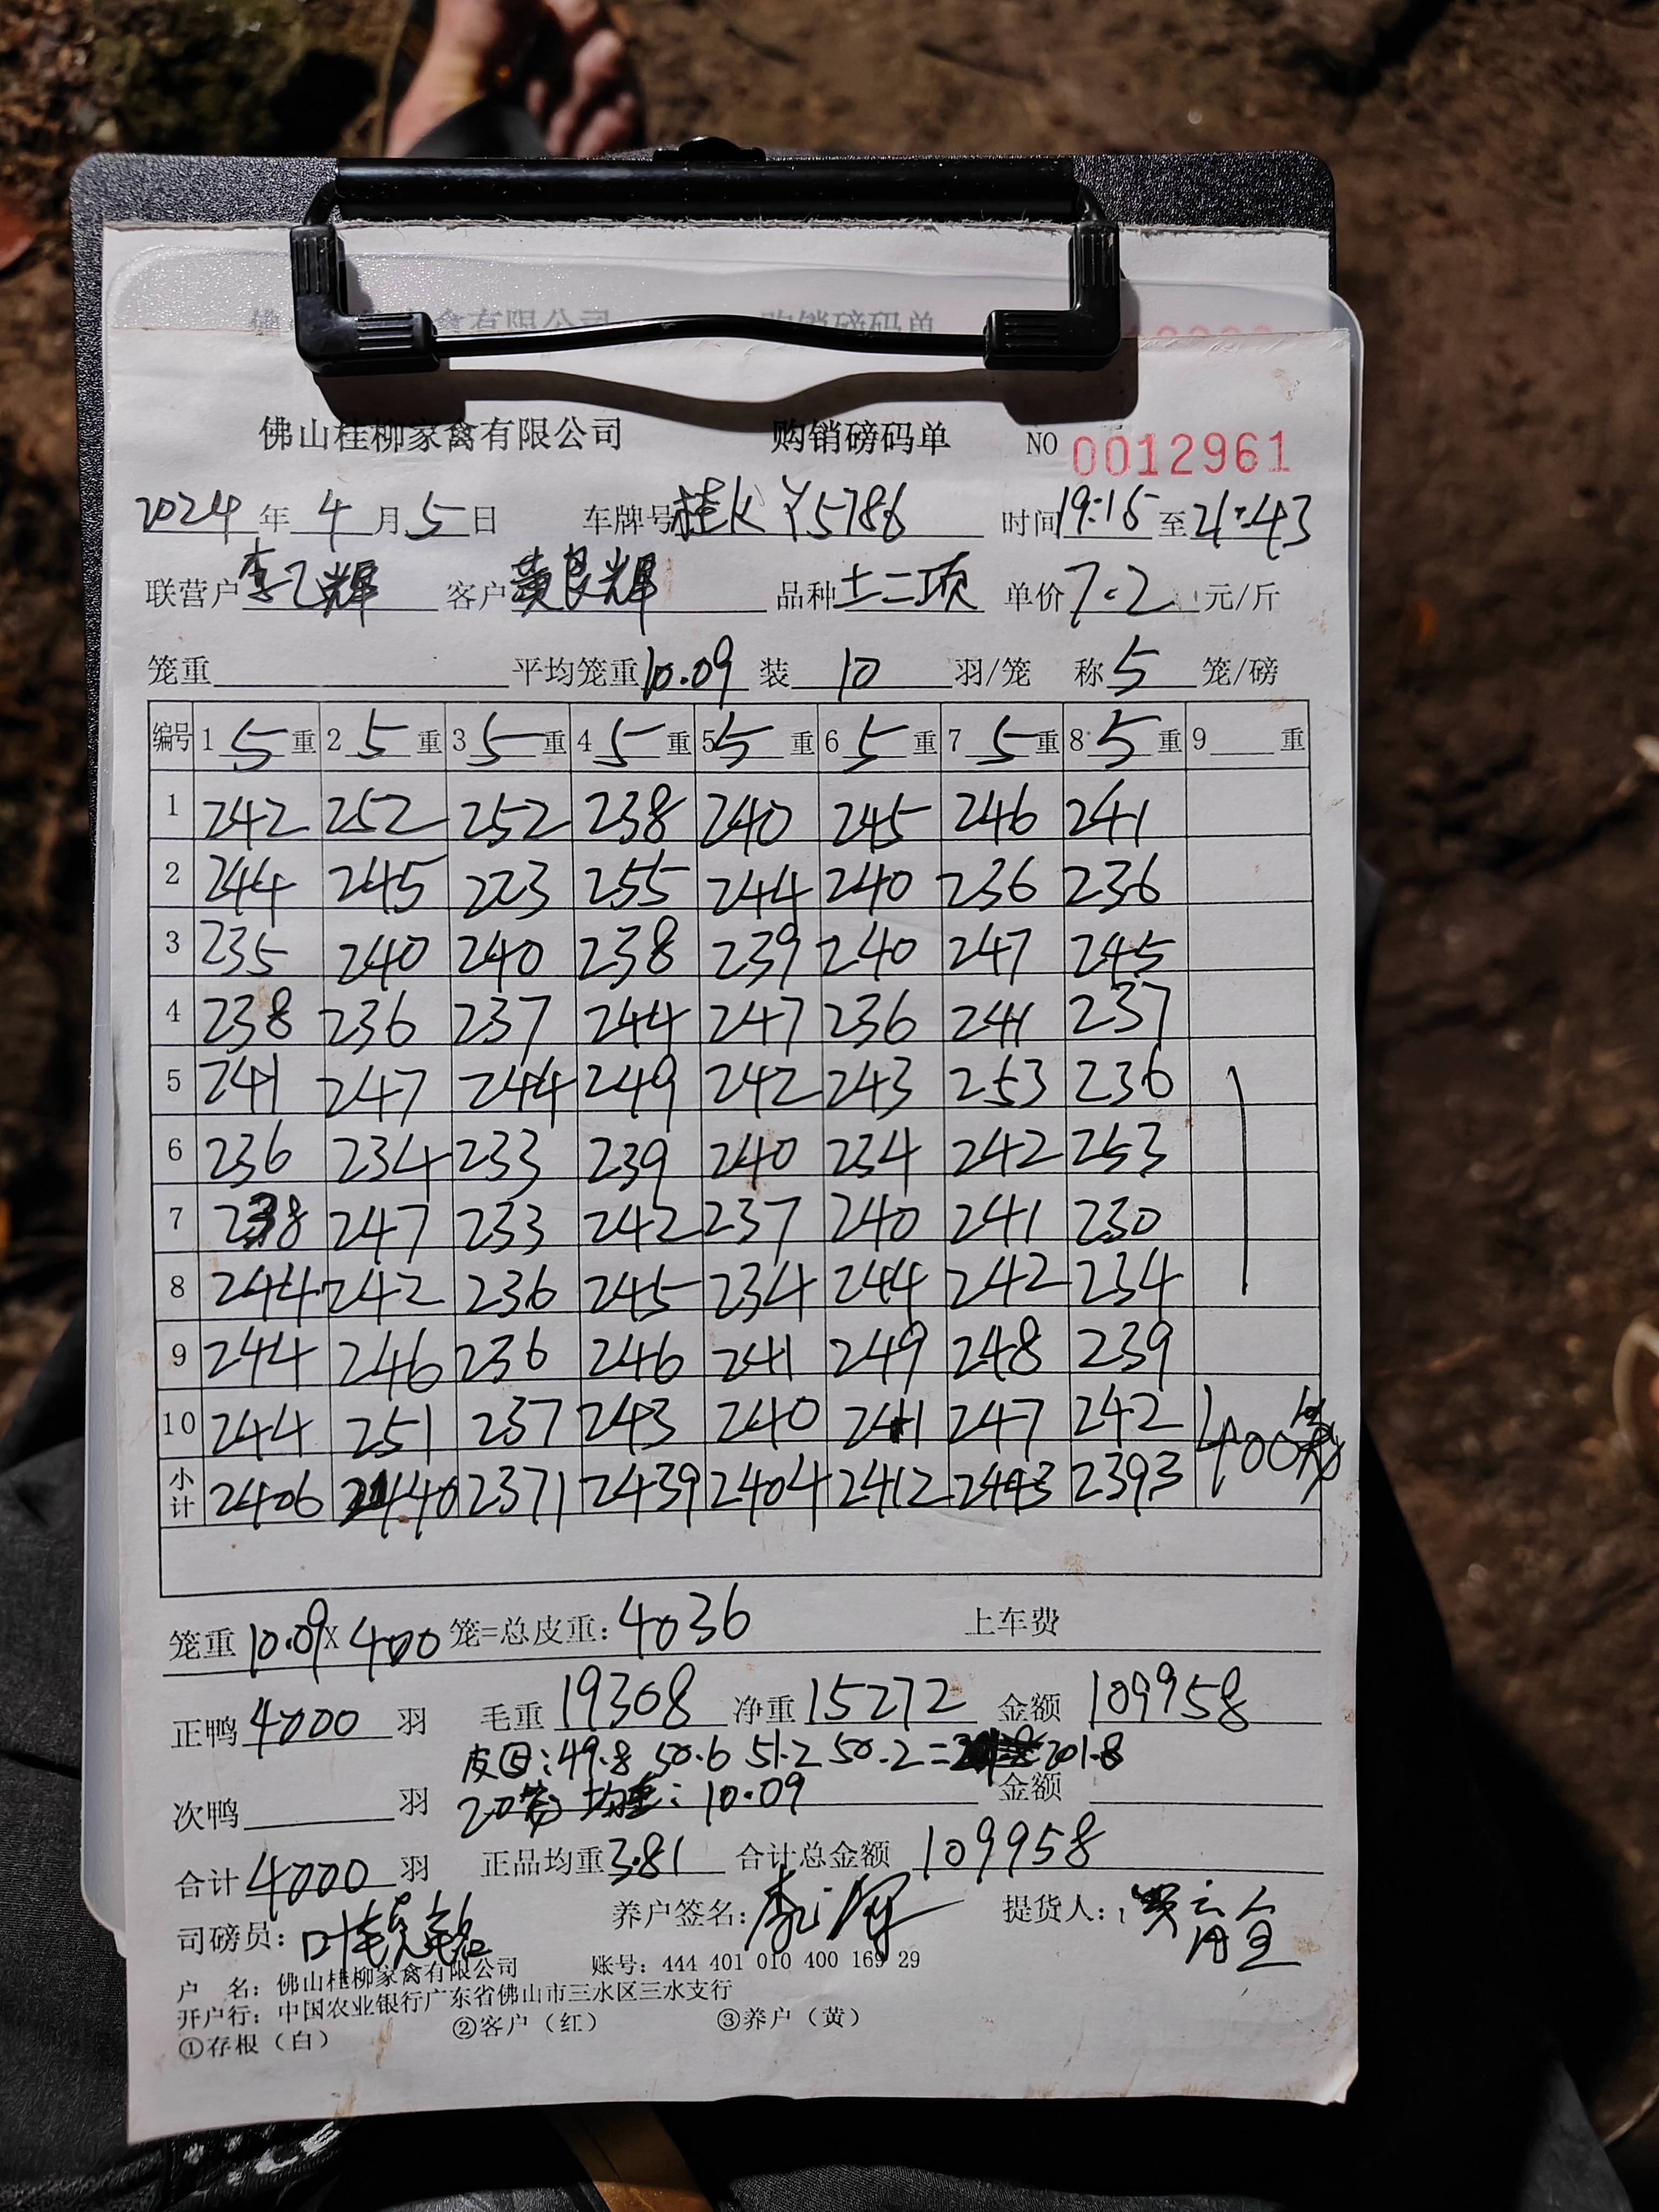 佛山桂柳家禽有限公司 购销磅码单 NO 0012961
2024年4月5日 车牌号桂K Y5786 时间19:15至21:43
联营户李乙辉 客户黄良辉 品种土二项 单价7.2元/斤
笼重 平均笼重10.09 装10羽/笼 称5笼/磅
编号 1 5重 2 5重 3 5重 4 5重 5 5重 6 5重 7 5重 8 5重 9 重
1 242 252 252 238 240 245 246 241
2 244 245 223 255 244 240 236 236
3 235 240 240 238 239 240 247 245
4 238 236 237 244 247 236 241 237
5 241 247 244 249 242 243 253 236
6 236 234 233 239 240 234 242 253
7 238 247 233 242 237 240 241 230
8 244 242 236 245 234 244 242 234
9 244 246 236 246 241 249 248 239
10 244 251 237 243 240 241 247 242
小计 2406 2440 2371 2439 2404 2412 2443 2393 400笼
笼重10.09×400笼=总皮重：4036 上车费
正鸭4000羽 毛重19308 净重15272 金额109958
皮回：49.8 50.6 51.2 50.2= 201.8
次鸭 羽 20笼 均重：10.09 金额
合计4000羽 正品均重3.81 合计总金额109958
司磅员：叶 养户签名：李乙辉 提货人：
户 名：佛山桂柳家禽有限公司 账号：444 401 010 400 169 29
开户行：中国农业银行广东省佛山市三水区三水支行
①存根（白） ②客户（红） ③养户（黄）